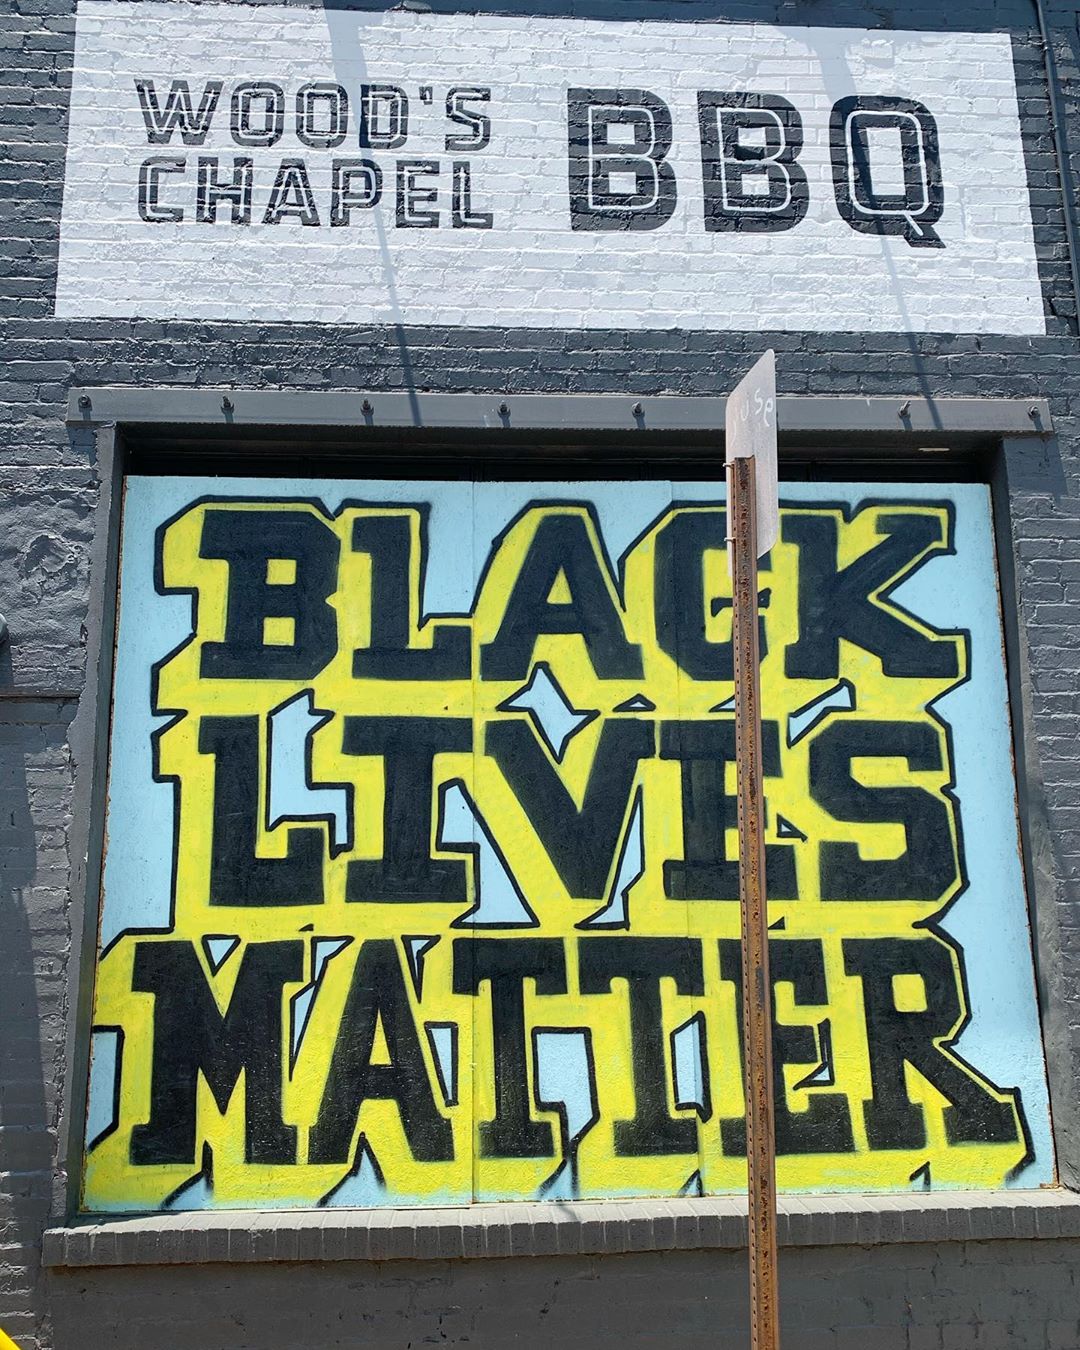 WOOD'S
CHAPEL
BBQ
BLACK
LIVES
MATTER